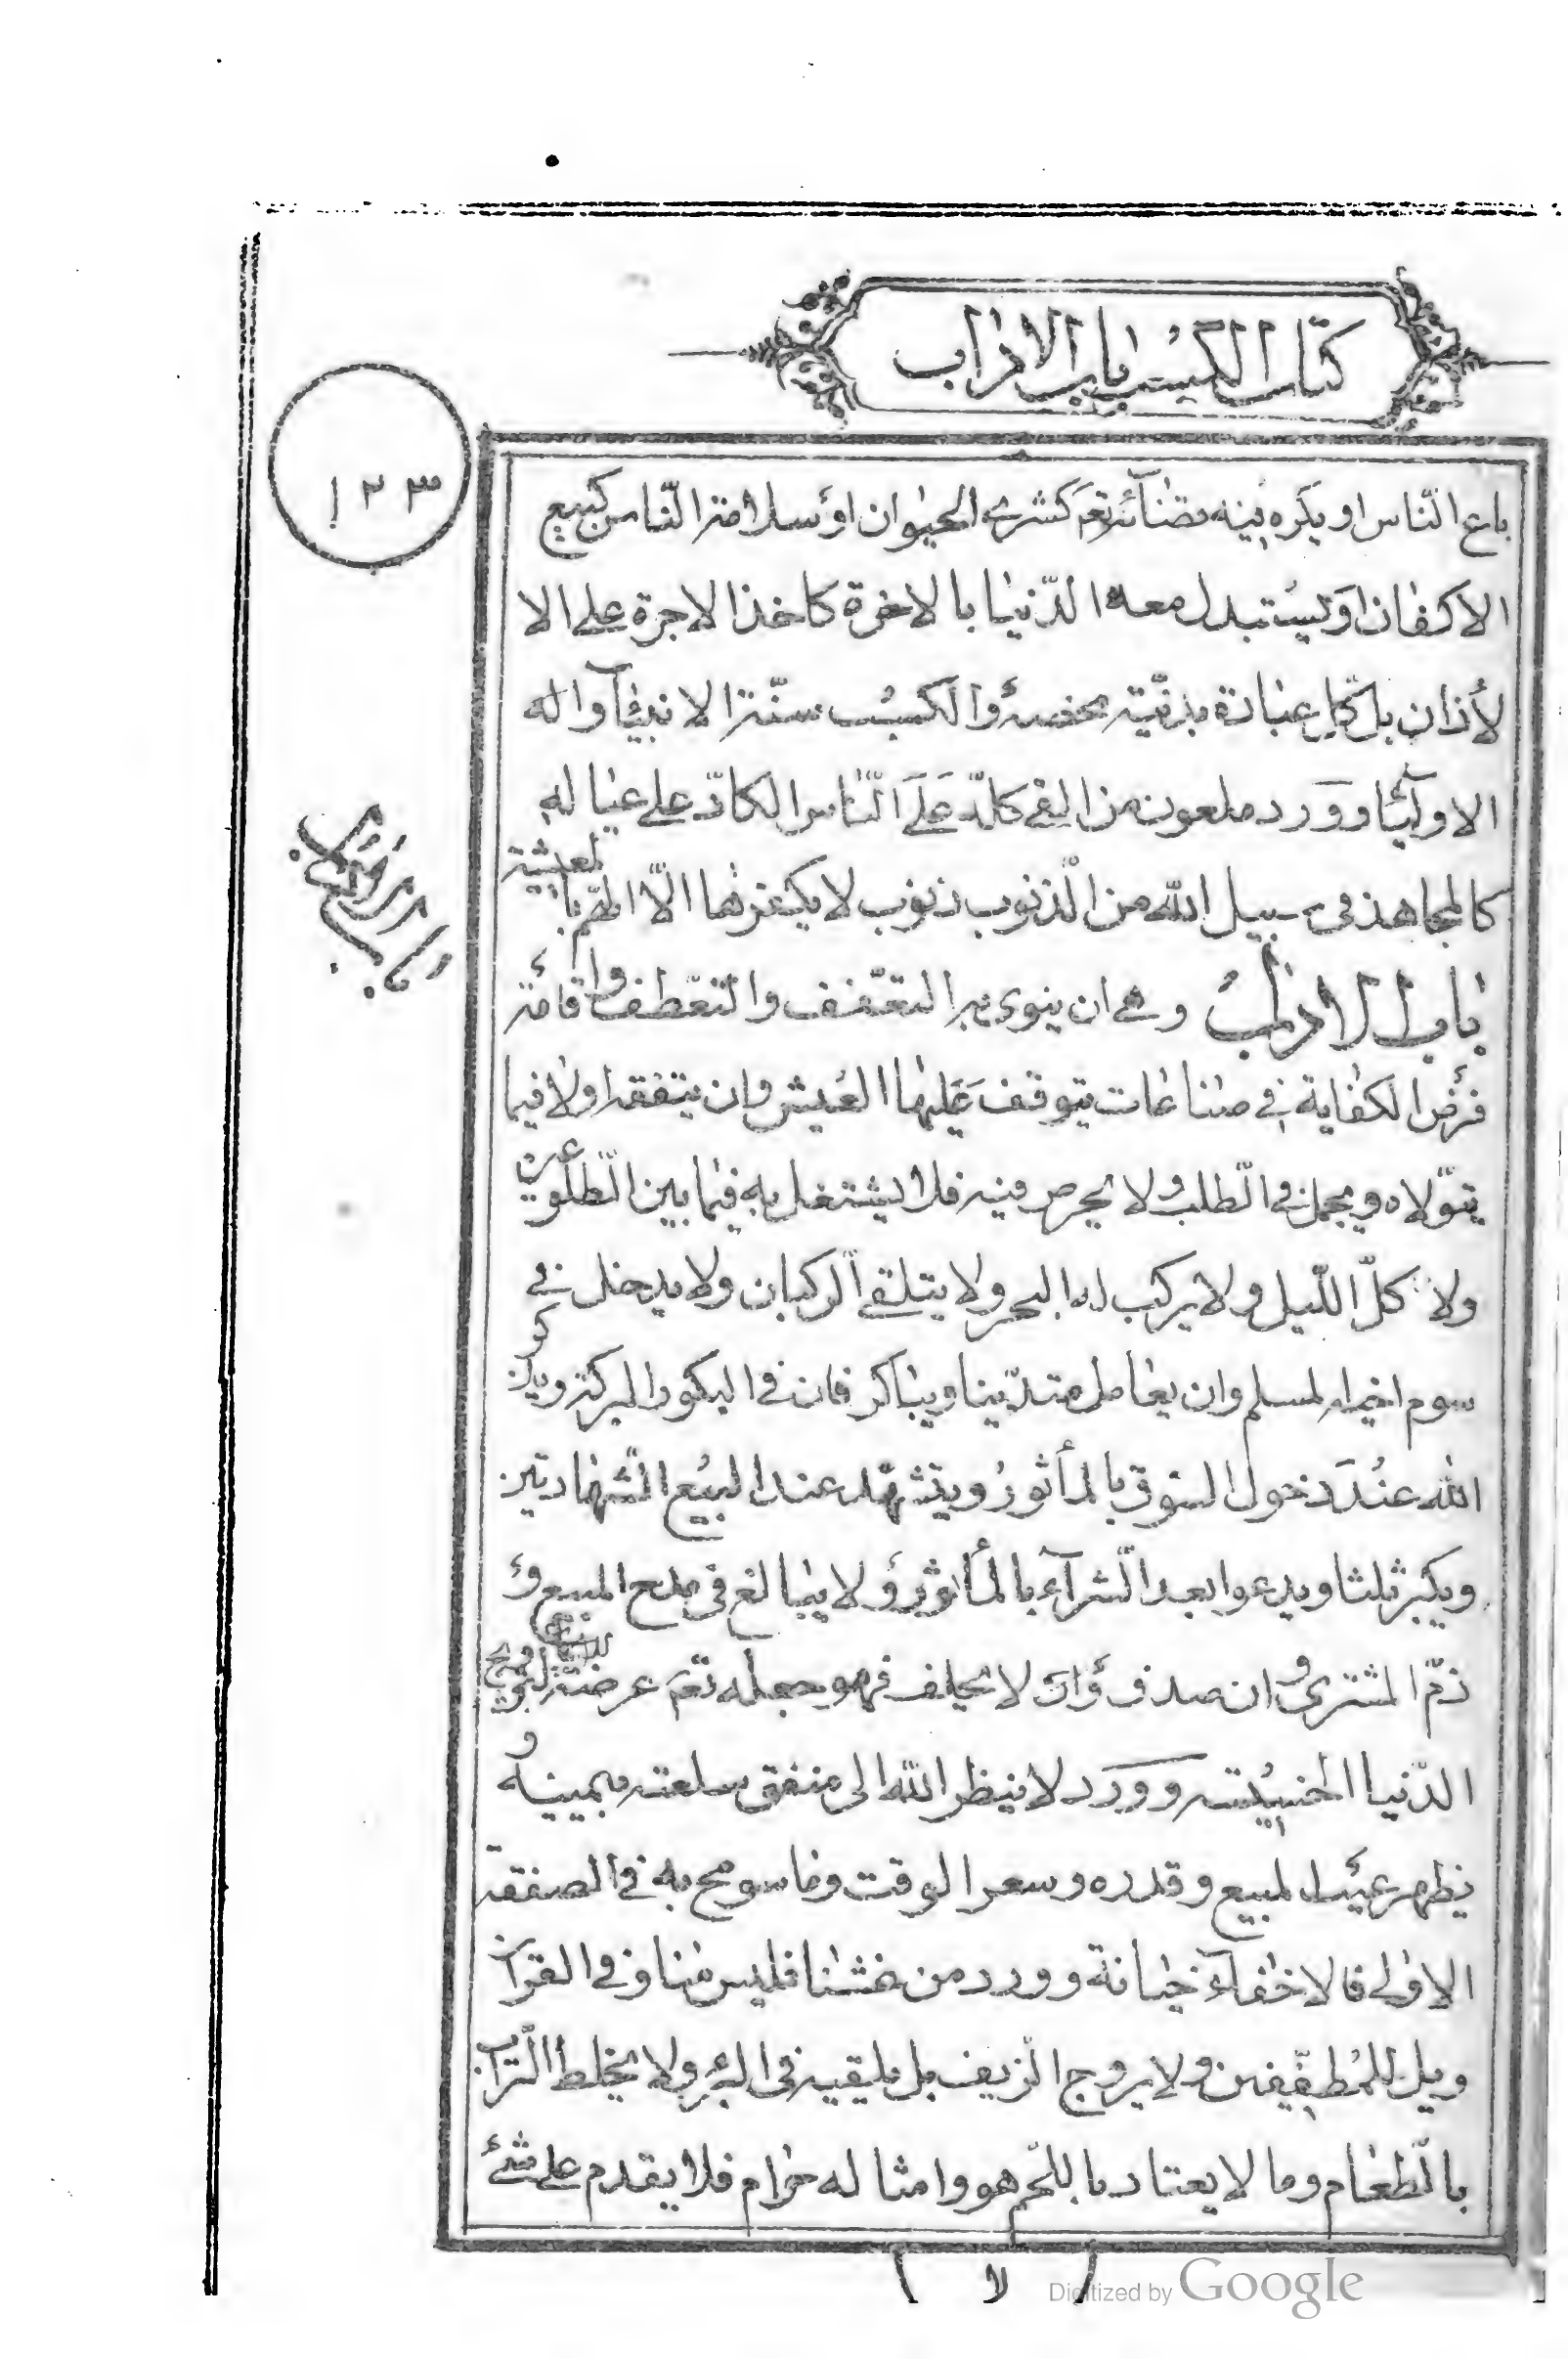 كتاب الكسب باب الاداب
١٢٣
باع الناس او يكره فيه قضائه تعم كشرى الحيوان او سلامة الناس كبيع
الاكفان او يستبدل معه الدنيا بالاخرة كاخذ الاجرة على الا
لأذان بل كل عبادة بدنية محضة والكسب سنة الانبيآء واله
الاوليآء وورد ملعون من القى كله على الناس الكاد على عياله
كالمجاهد فى سبيل الله من الذنوب ذنوب لا يكفرها الا الهم بالمعيشة
باب الاداب وهى ان ينوى به التعفف والتعطف واقامة
فرض الكفاية فى صناعات يتوقف عليها العيش وان يتفقه اولا فيما
يتولاه ويجمل فى الطلب ولا يحرص فيه فلا يشتغل به فيما بين الطلوعين
ولا كل الليل ولا يركب له البحر ولا يتلقى الركبان ولا يدخل فى
سوم اخيه المسلم وان يعامل متدينا ويباكر فان فى البكور البركة ويذكر
الله عند دخول السوق بالمأثور ويتشهد عند البيع الشهادتين
ويكبر ثلثا ويدعوا بعد الشرآء بالمأثور ولا يبالغ فى مدح المبيع و
ذم المشترى وان صدق وان لا يحلف فهو جعله تعم عرضة
الدنيا الخسيسة وورد لا ينظر الله الى منفق سلعته بيمينه و
يظهر عيب المبيع وقدره وسعر الوقت وما سومح به فى الصفقة
الاولى فالاخفآء خيانة وورد من غشنا فليس منا وفى القران
ويل للمطففين ولا يروج الزيف بل يلقيه فى البئر ولا يخلط التراب
بالطعام وما لا يعتاد باللحم هو وامثاله حرام فلا يقدم على شئ
باب
لا
Digitized by Google